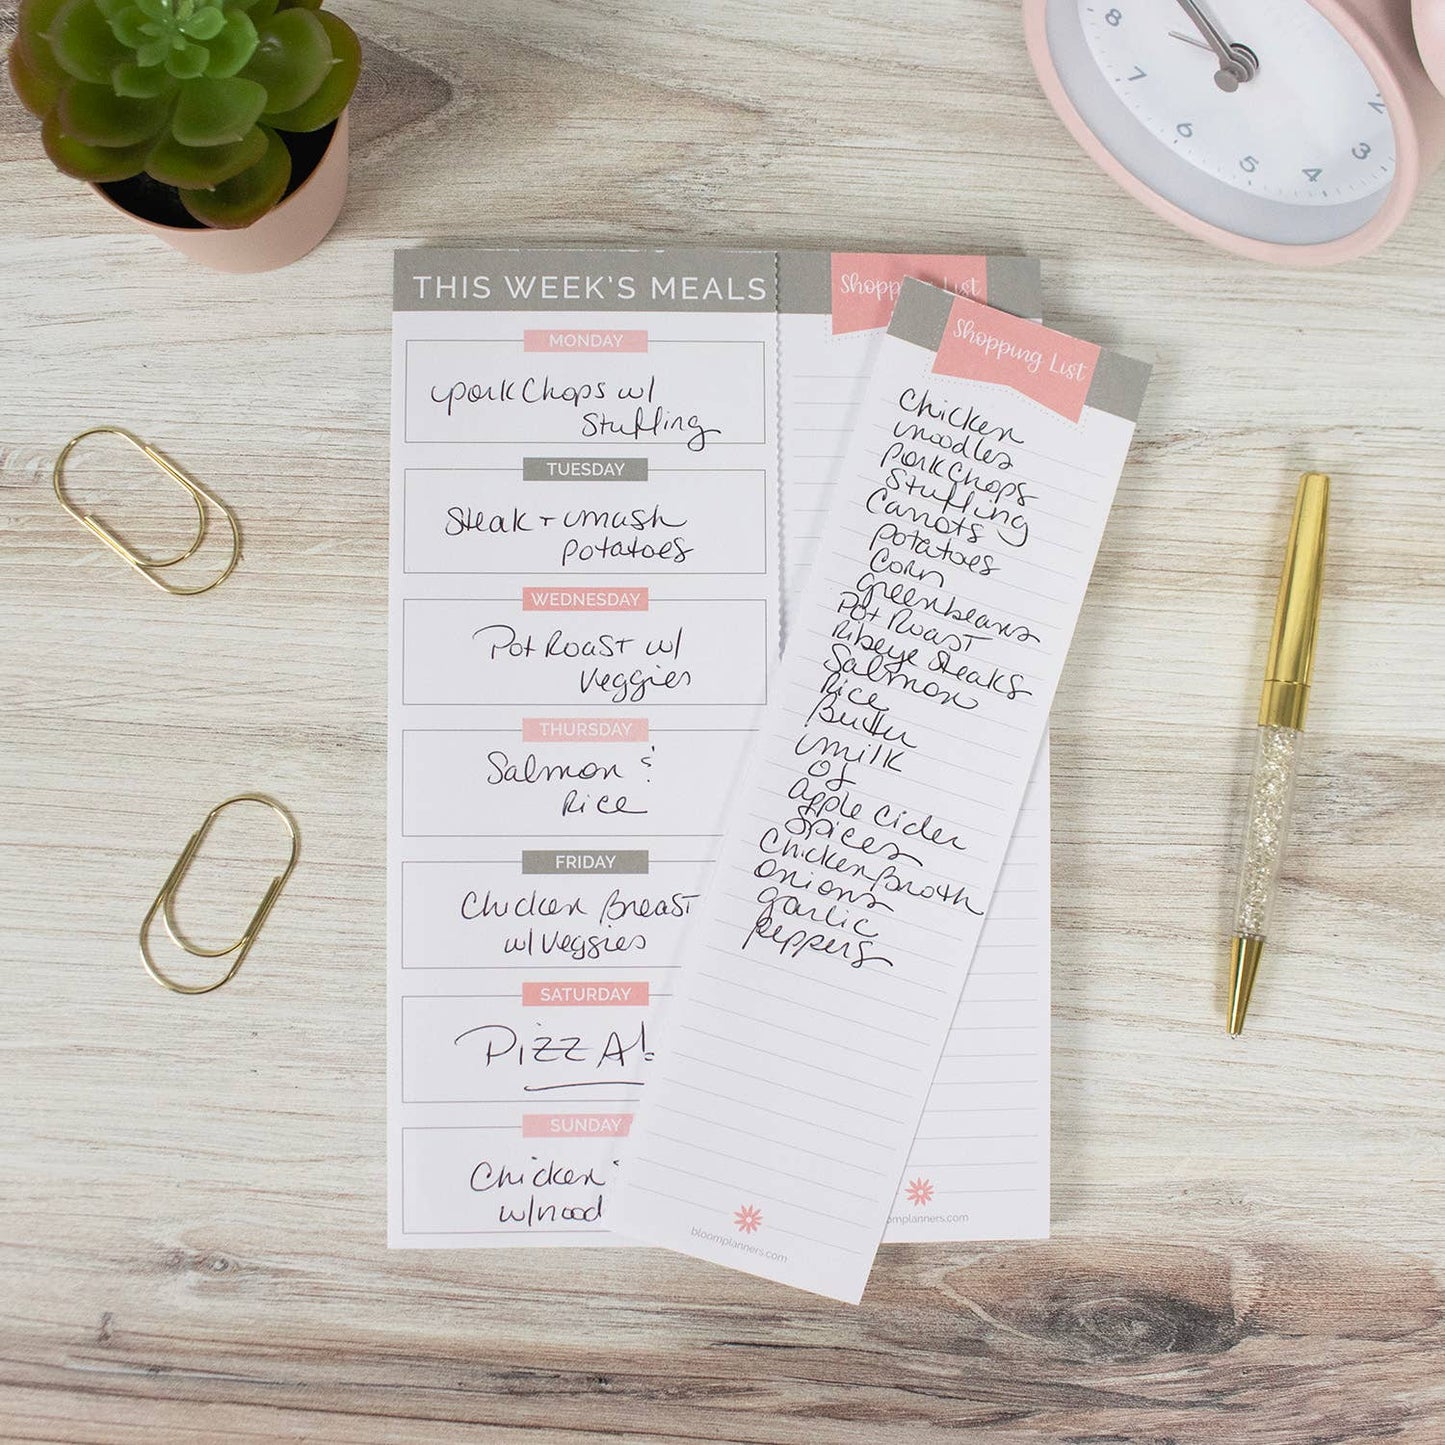 8
7
6
5
4
3
2
THIS WEEK'S MEALS
MONDAY
pork Chops w/
Stuffing
TUESDAY
Steak + mash
potatoes
WEDNESDAY
Pot Roast w/
Veggies
THURSDAY
Salmon &
Rice
FRIDAY
Chicken Breast
w/ Veggies
SATURDAY
PIZZA!
SUNDAY
Chicken
w/nood
Shopp
List
omplanners.com
Shopping List
Chicken
noodles
pork chops
Stuffing
Carrots
potatoes
Corn
greenbeans
Pot Roast
Ribeye Steaks
Salmon
Rice
Butter
milk
OJ
apple cider
Spices
Chicken Broth
onions
garlic
peppers
bloomplanners.com